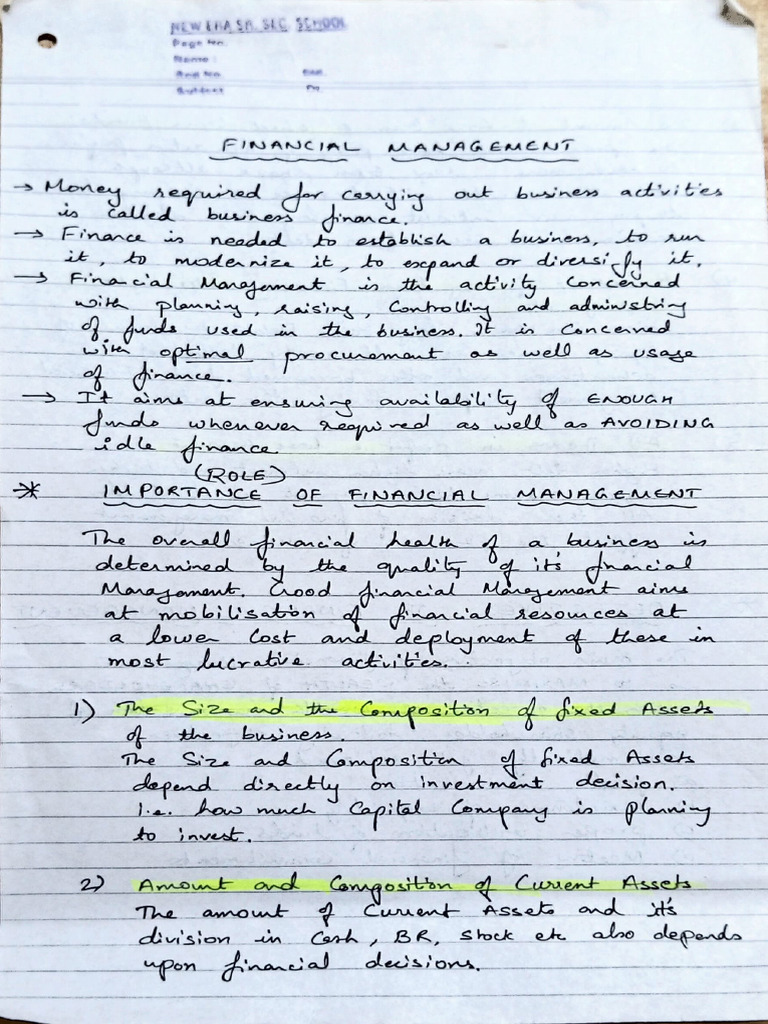 NEW ERA SR. SEC. SCHOOL
Page No.
Name :
Roll No.
Subject
FINANCIAL MANAGEMENT
→ Money required for carrying out business activities
is called business finance.
→ Finance is needed to establish a business, to run
it, to modernize it, to expand or diversify it.
→ Financial Management is the activity concerned
with planning, raising, Controlling and administring
of funds used in the business. It is Concerned
with optimal procurement as well as usage
of finance.
→ It aims at ensuring availability of ENOUGH
funds whenever required as well as AVOIDING
idle finance
(ROLE)
* IMPORTANCE OF FINANCIAL MANAGEMENT
The overall financial health of a business is
determined by the quality of it's financial
Management. Good financial Management aims
at mobilisation of financial resources at
a lower cost and deployment of these in
most lucrative activities.
1) The Size and the Composition of fixed Assets
of the business.
The Size and Composition of fixed Assets
depend directly on investment decision.
i.e. how much Capital Company is planning
to invest.
2) Amount and Composition of Current Assets
The amount of Current Assets and it's
division in Cash, BR, Stock etc also depends
upon financial decisions.